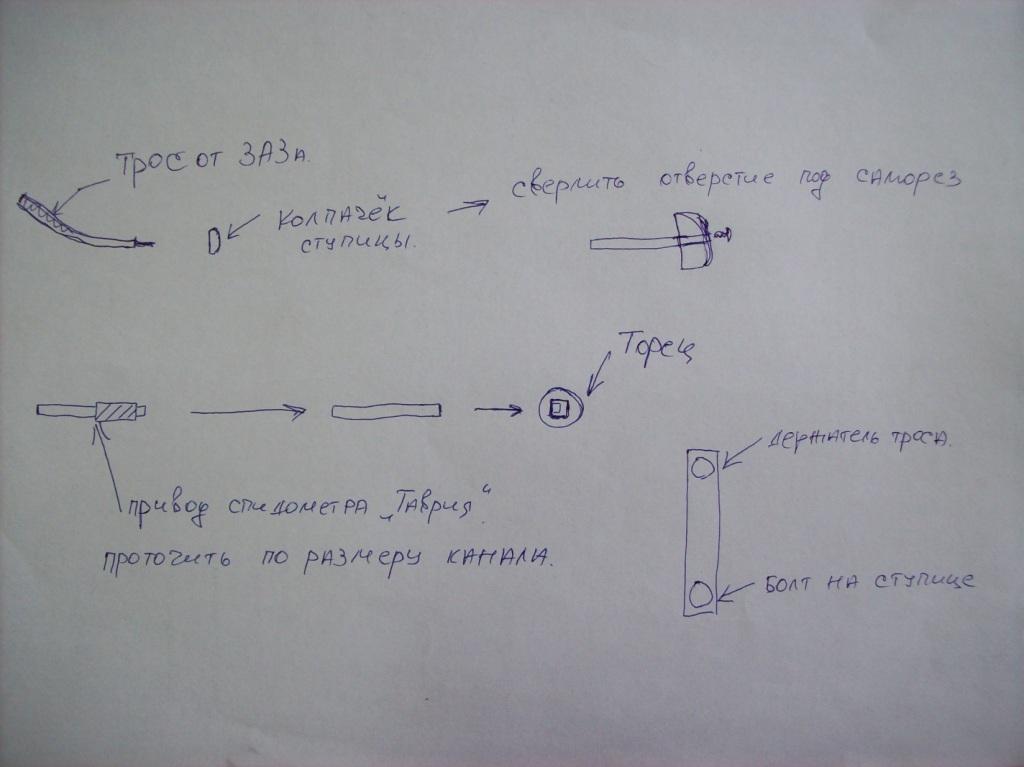 Трос от ЗАЗа.
сверлить отверстие под саморез
колпачёк
ступицы.
Торец
держатель троса.
привод спидометра „Таврия“
проточить по размеру канала.
болт на ступице